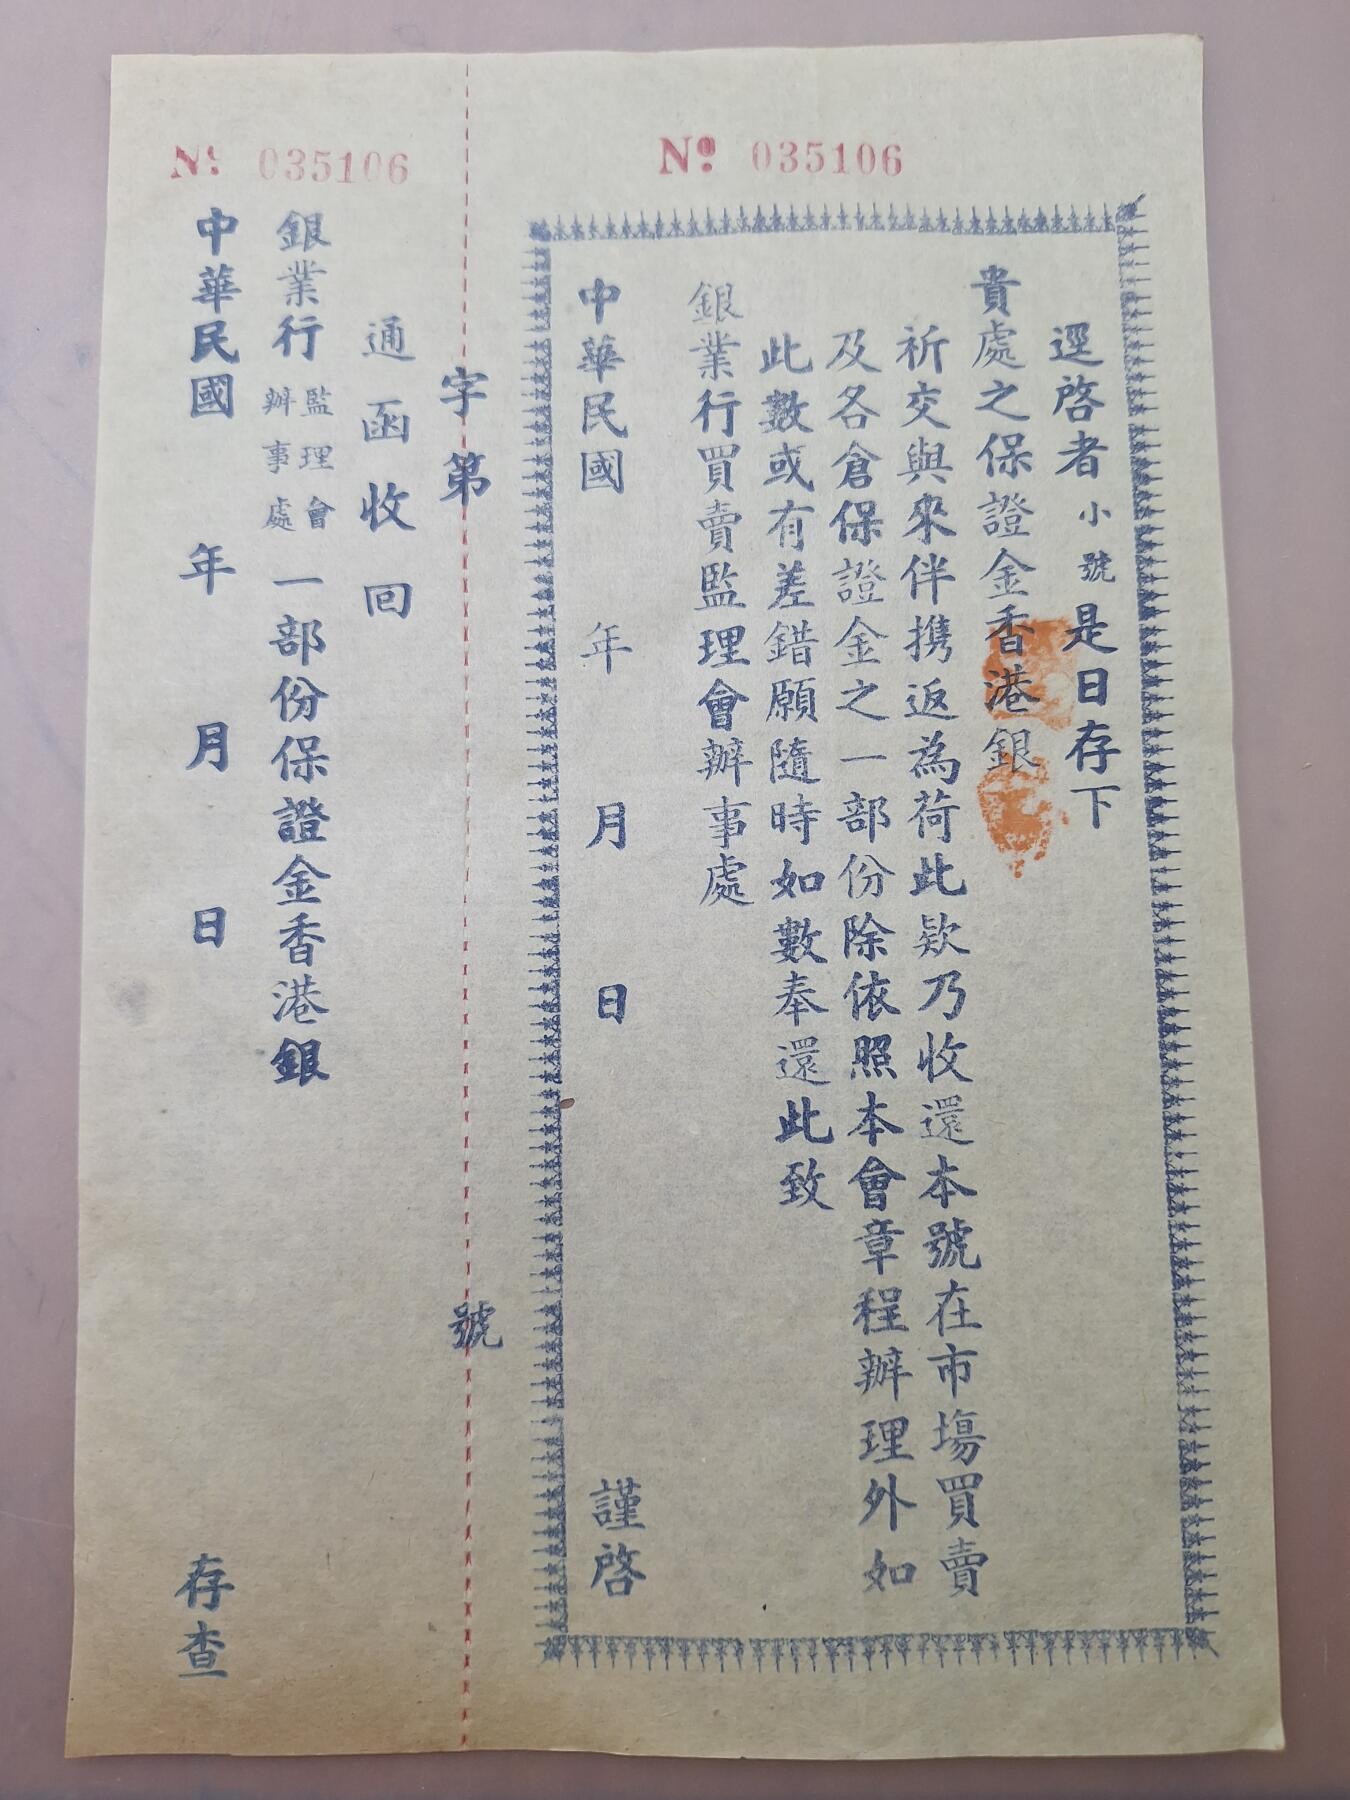 Nº 035106
逕啓者小號是日存下
貴處之保證金香港銀
祈交與來伴携返為荷此欵乃收還本號在市塲買賣
及各倉保證金之一部份除依照本會章程辦理外如
此數或有差錯願隨時如數奉還此致
銀業行買賣監理會辦事處
中華民國 年 月 日 謹啓
字第 號
Nº 035106
通函收回
銀業行監理會辦事處一部份保證金香港銀
中華民國 年 月 日 存查